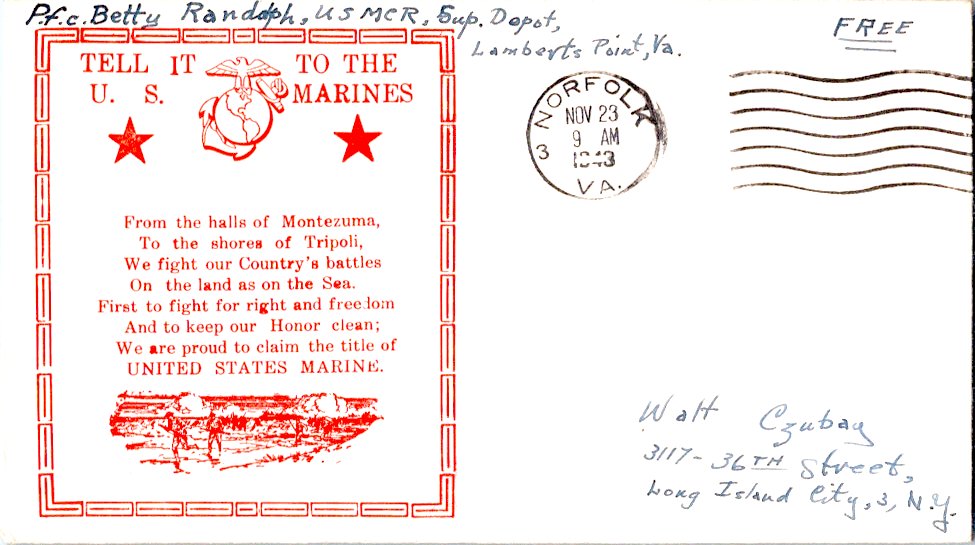 P.f.c. Betty Randolph, USMCR, Sup. Depot,
Lamberts Point, Va.
FREE
TELL IT TO THE
U. S. MARINES
NORFOLK
NOV 23
9 AM
1943
3
VA.
From the halls of Montezuma,
To the shores of Tripoli,
We fight our Country's battles
On the land as on the Sea.
First to fight for right and freedom
And to keep our Honor clean;
We are proud to claim the title of
UNITED STATES MARINE.
Walt Czubay
3117-36TH Street,
Long Island City, 3, N.Y.